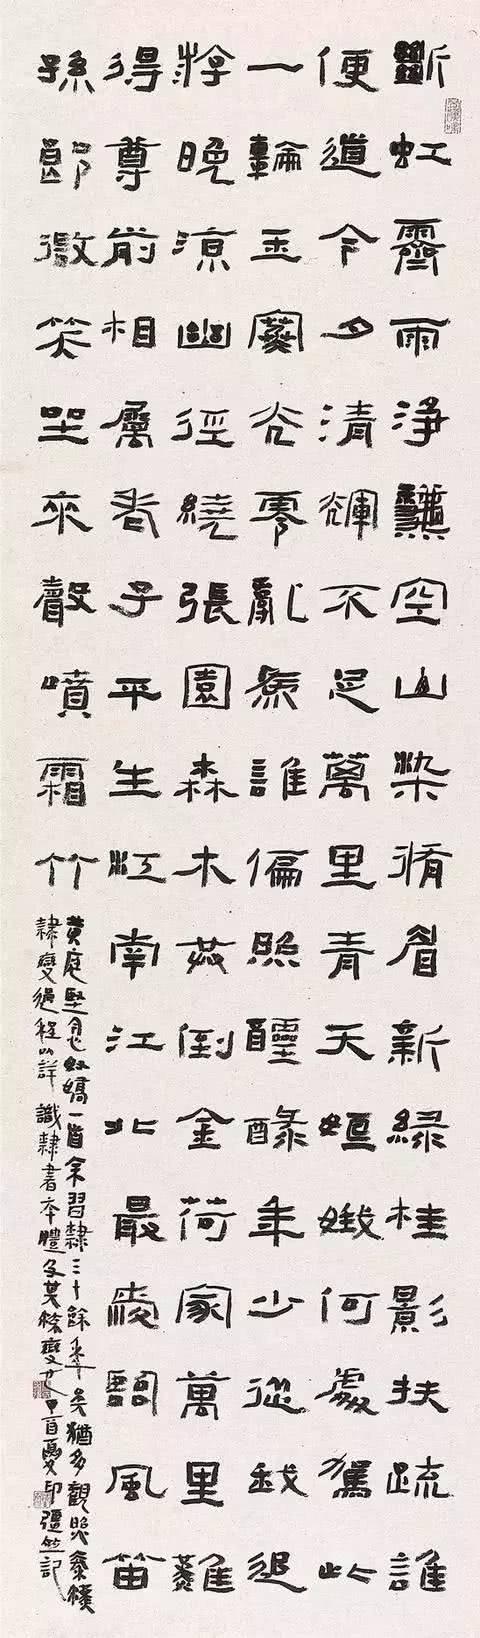 斷虹霽雨淨龝空山染脩眉新綠桂影扶疏誰
便道今夕清輝不足萬里青天姮娥何處駕此
一輪玉寒光零亂為誰偏照醽醁年少從我追
游晚涼幽徑繞張園森木共倒金荷家萬里難
得尊前相屬老子平生江南江北最愛臨風笛
孫郎微笑坐來聲噴霜竹
黃庭堅念奴嬌一首余習隸三十餘年矣猶多觀照秦
隸變過程以詳識隸書本體及其條變 首夏印彊竝記